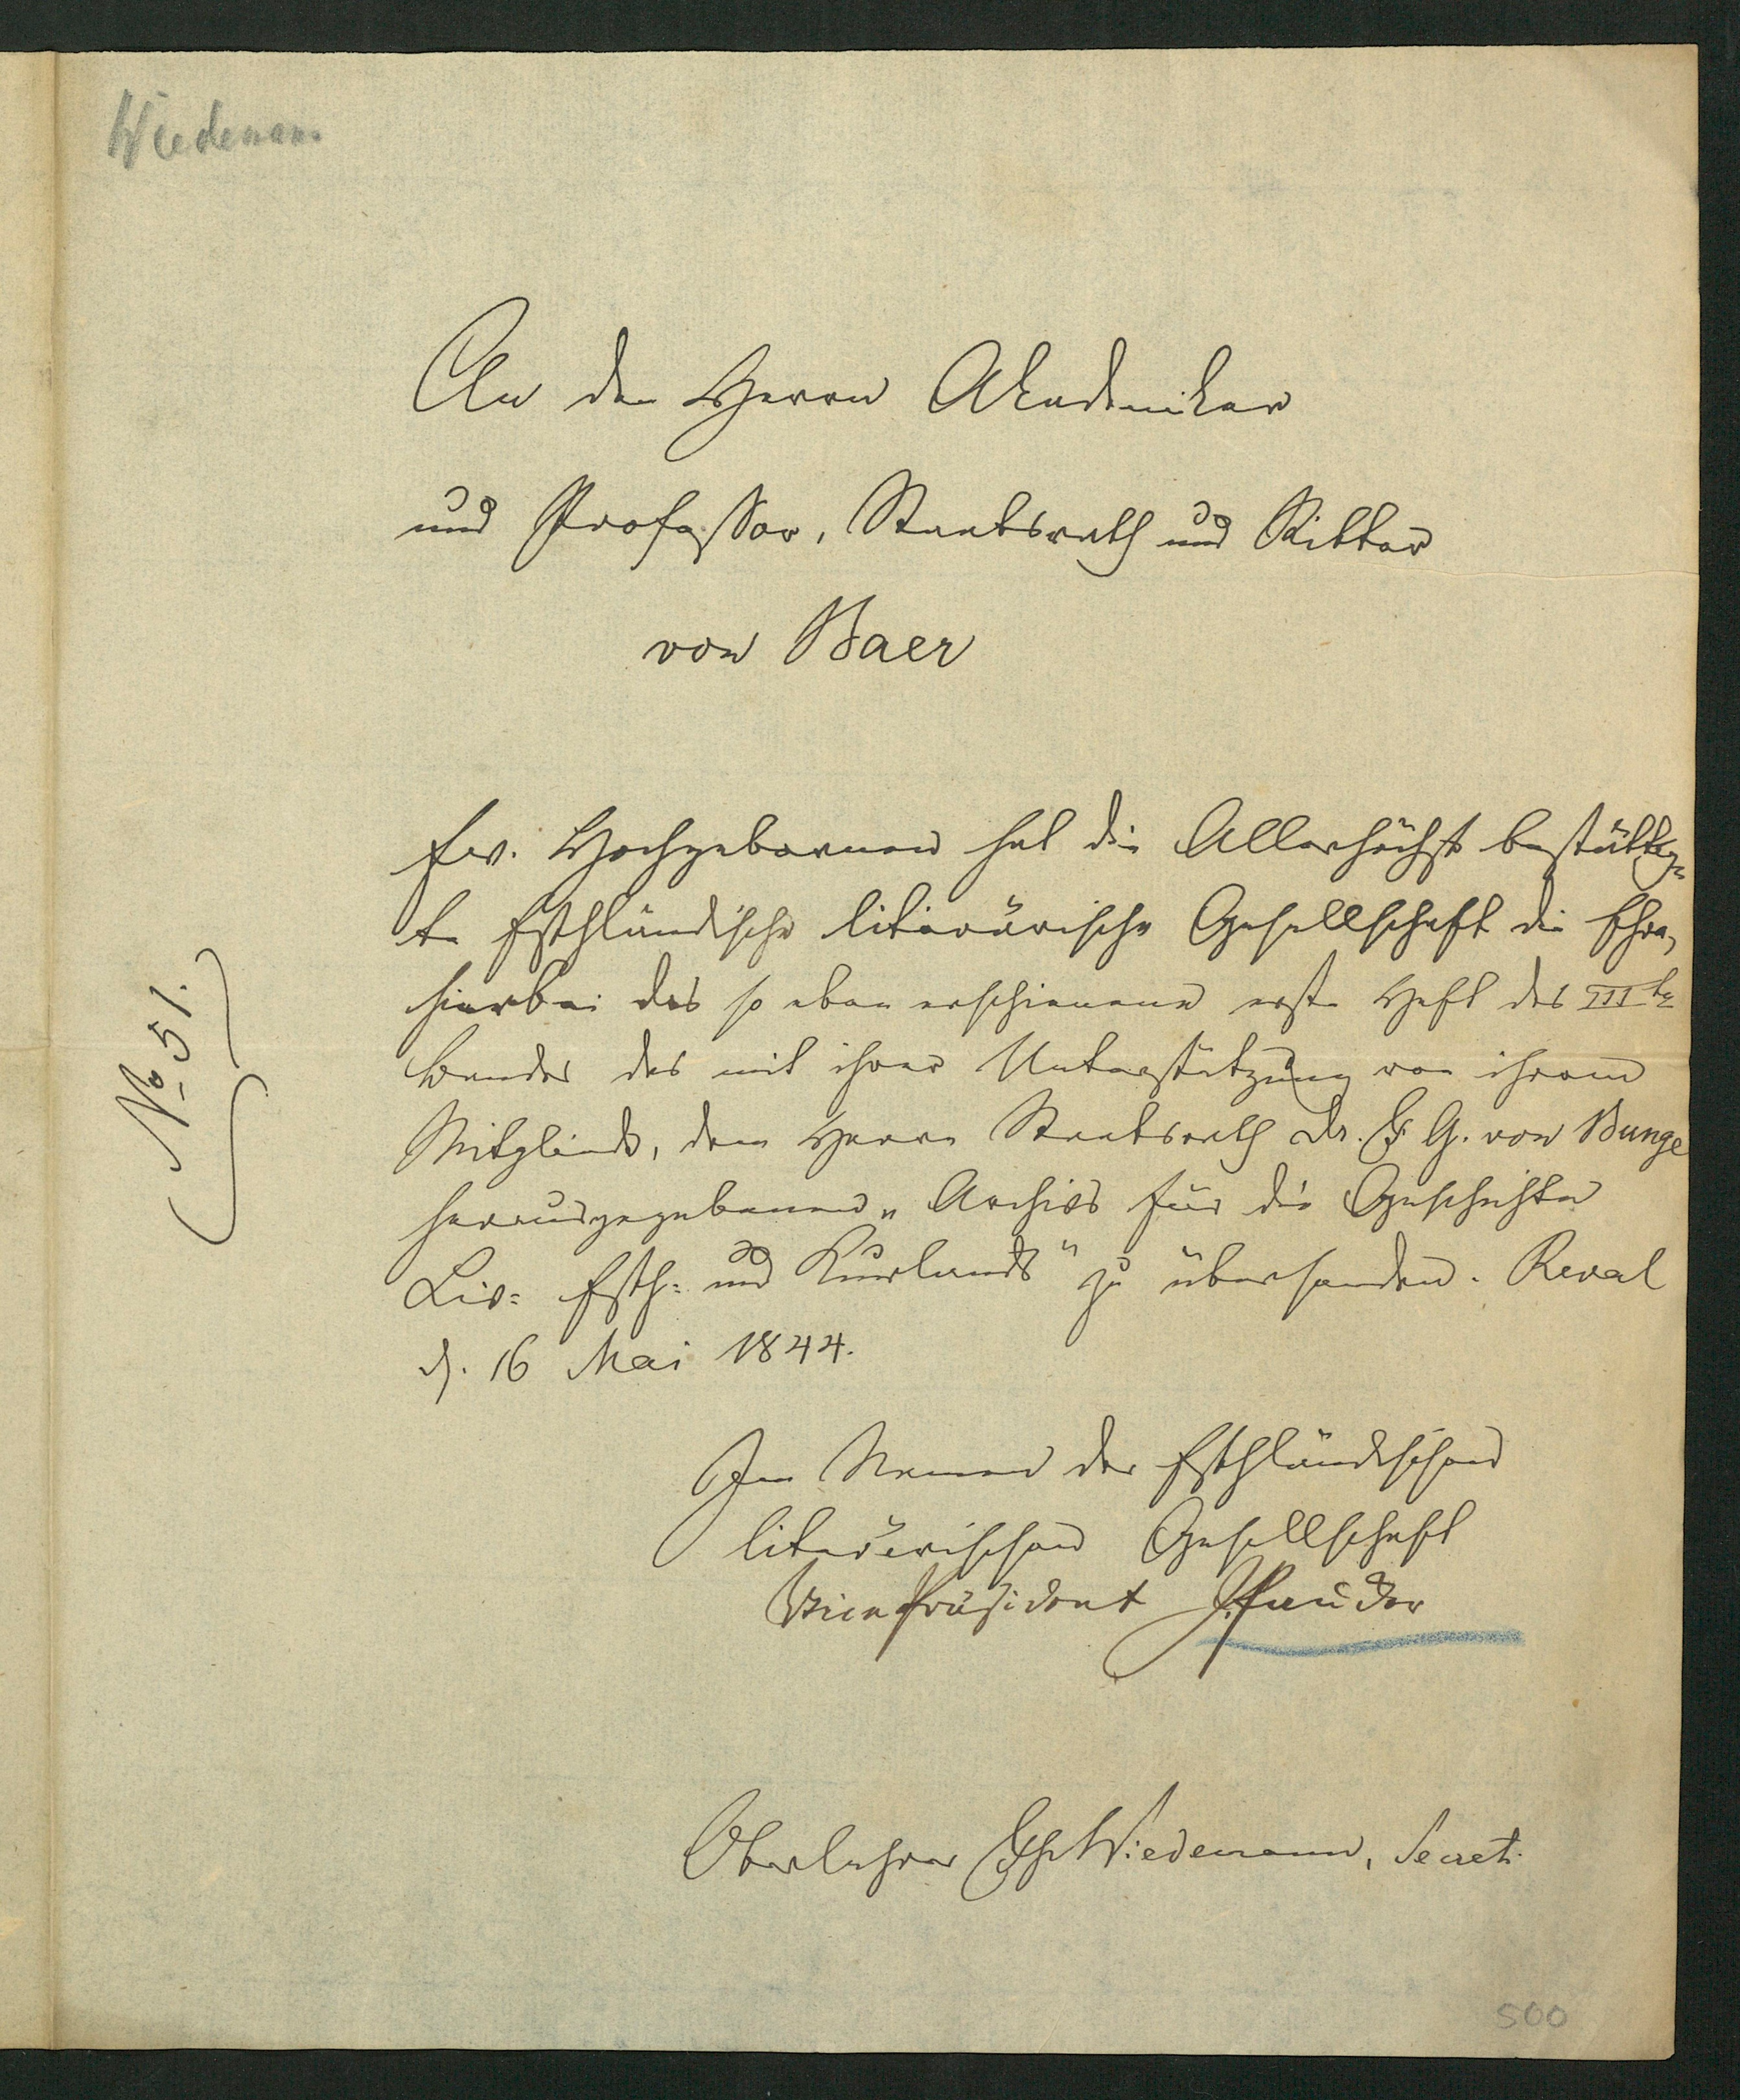 Wiedemann
An den Herrn Akademiker
und Professor, Staatsrath und Ritter
von Baer
Ew. Hochgebornen hat die Allerhöchst bestättig-
te Esthländische literärische Gesellschaft die Ehre,
hierbei das so eben erschienene erste Heft des III ten
Bandes des mit ihrer Unterstützung von ihrem
Mitgliede, dem Herrn Staatsrath Dr. F. G. von Bunge
herausgegebenen „Archivs für die Geschichte
Liv- Esth- und Kurlands“ zu übersenden. Reval
d. 16 Mai 1844.
No 51.
Im Namen der Esthländischen
literärischen Gesellschaft
Vicepräsident Paucker
Oberlehrer Wiedemann, Secret.
500